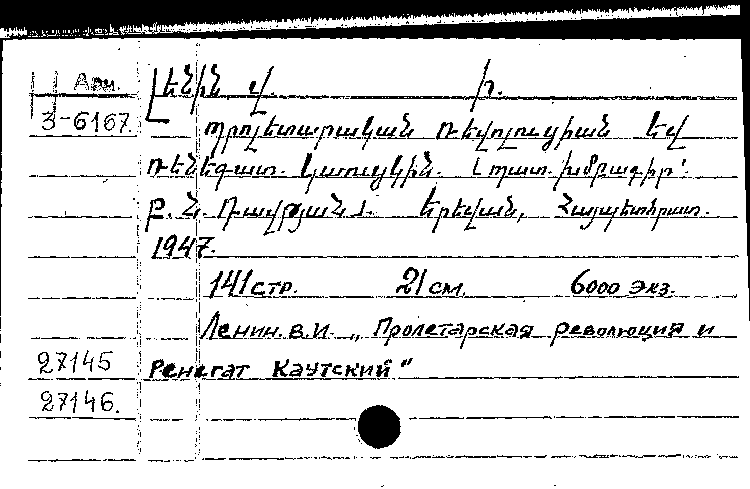 Арм. Լենին Վ. Ի.
3-6167 Պրոլետարական ռեվոլուցիան եվ
ռենեգատ Կաուցկին. (պատ. խմբագիր՝
Բ. Ն. Դավթյան). Երեվան, Հայպետհրատ.
1947.
141 стр. 21 см. 6000 экз.
Ленин. В.И. „Пролетарская революция и
27145 Ренегат Каутский"
27146.